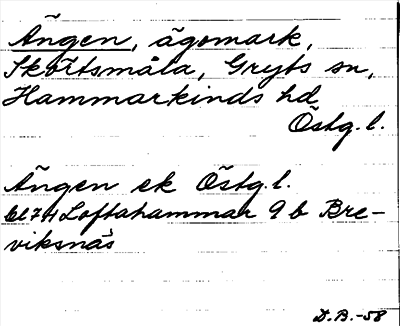 Ängen, ägomark,
Skörtsmåla, Gryts sn,
Hammarkinds hd
Östg. l.
Ängen ek Östg. l.
Loftahammar 9 b Bre-
viksnäs
D.B.-58